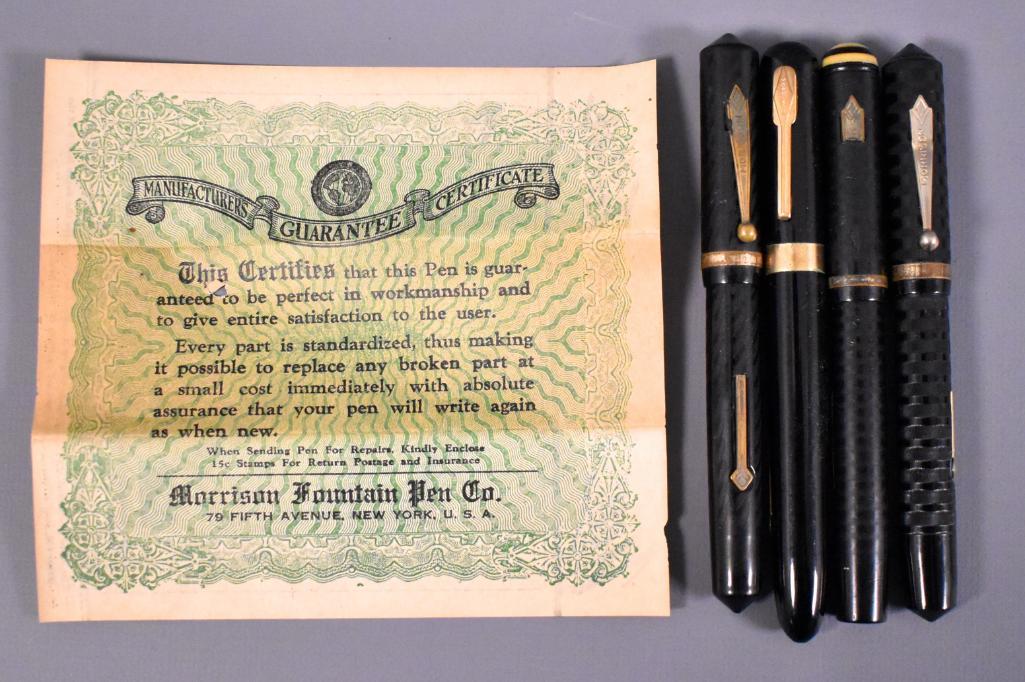 MANUFACTURERS GUARANTEE CERTIFICATE
This Certifies that this Pen is guar-
anteed to be perfect in workmanship and
to give entire satisfaction to the user.
Every part is standardized, thus making
it possible to replace any broken part at
a small cost immediately with absolute
assurance that your pen will write again
as when new.
When Sending Pen For Repairs, Kindly Enclose
15c Stamps For Return Postage and Insurance
Morrison Fountain Pen Co.
79 FIFTH AVENUE, NEW YORK, U. S. A.
MORRISON